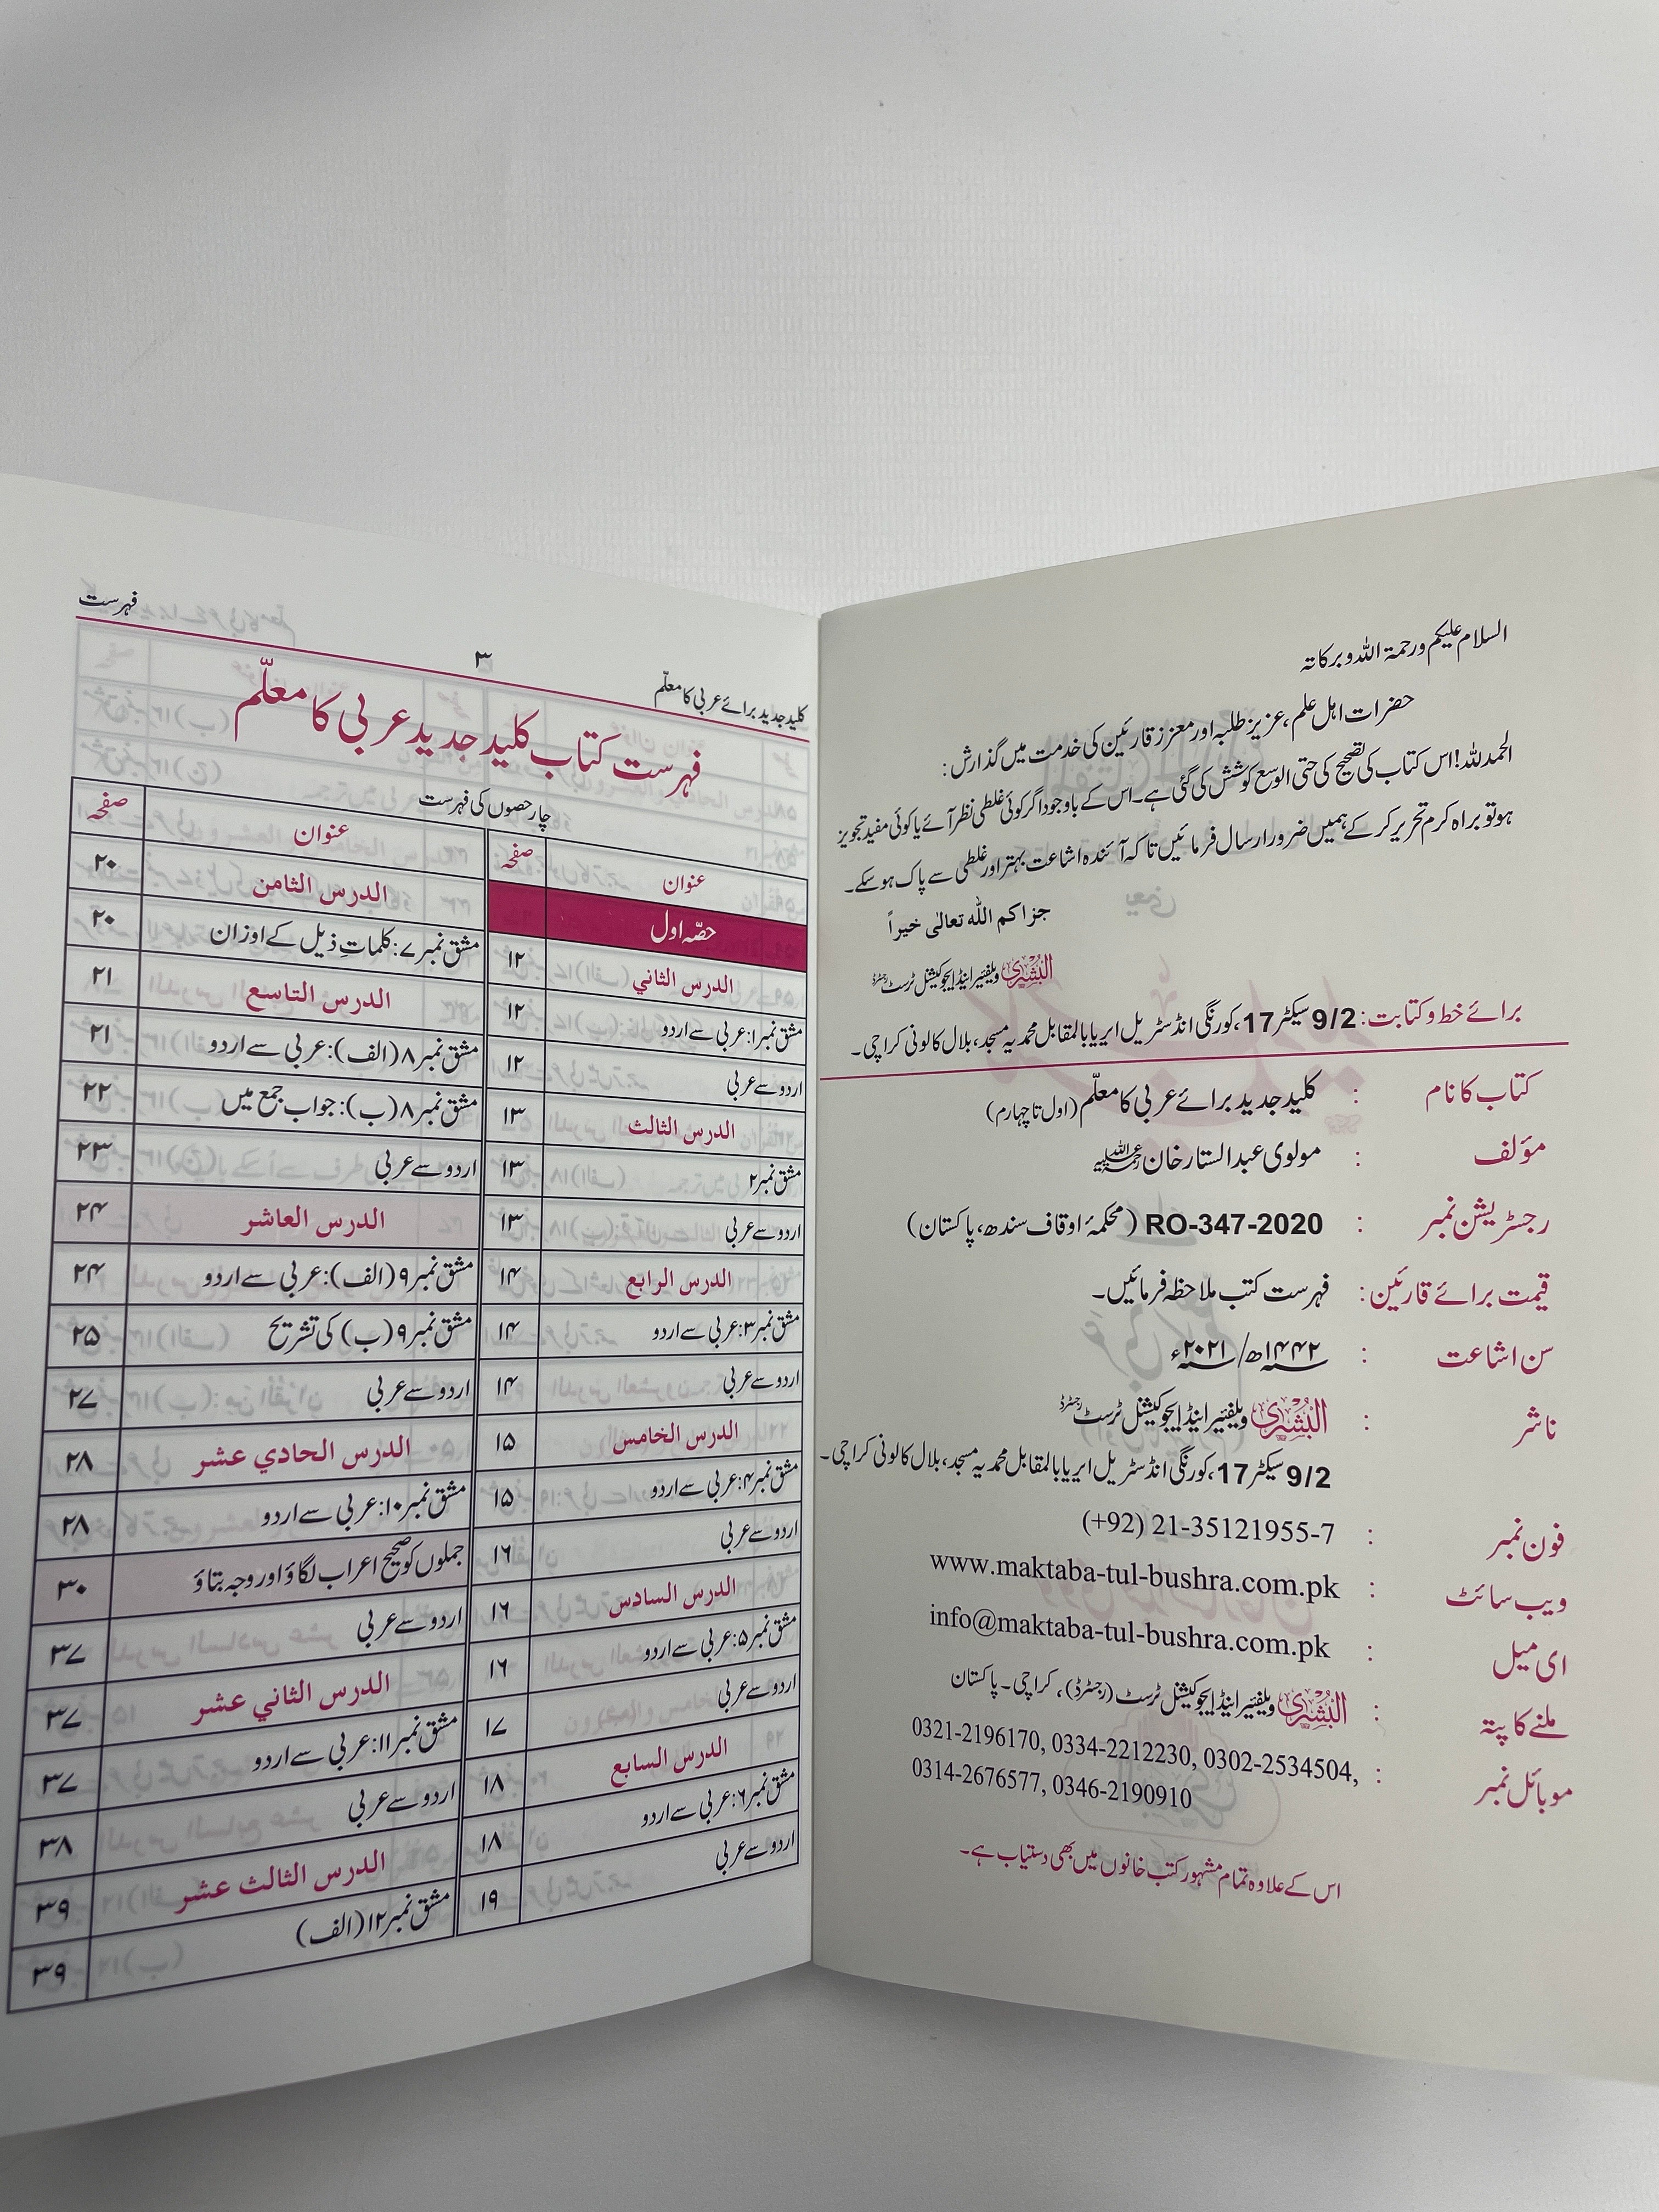 السلام علیکم ورحمۃ اللہ وبرکاتہ
حضرات اہل علم، عزیز طلبہ اور معزز قارئین کی خدمت میں گذارش:
الحمدللہ! اس کتاب کی تصحیح کی حتی الوسع کوشش کی گئی ہے۔ اس کے باوجود اگر کوئی غلطی نظر آئے یا کوئی مفید تجویز
ہو تو براہ کرم تحریر کر کے ہمیں ضرور ارسال فرمائیں تاکہ آئندہ اشاعت بہتر اور غلطی سے پاک ہو سکے۔
جزاکم اللہ تعالٰی خیراً
البُشریٰ ویلفئیر اینڈ ایجوکیشنل ٹرسٹ رجسٹرڈ
برائے خط و کتابت: 9/2 سیکٹر 17، کورنگی انڈسٹریل ایریا بالمقابل محمدیہ مسجد، بلال کالونی کراچی۔
کتاب کا نام : کلید جدید برائے عربی کا معلّم (اول تا چہارم)
مؤلف : مولوی عبدالستار خان رحمۃ اللہ علیہ
رجسٹریشن نمبر : RO-347-2020 (محکمۂ اوقاف سندھ، پاکستان)
قیمت برائے قارئین: فہرست کتب ملاحظہ فرمائیں۔
سن اشاعت : ۱۴۴۲ھ/ ۲۰۲۱ء
ناشر : البُشریٰ ویلفئیر اینڈ ایجوکیشنل ٹرسٹ رجسٹرڈ
9/2 سیکٹر 17، کورنگی انڈسٹریل ایریا بالمقابل محمدیہ مسجد، بلال کالونی کراچی۔
فون نمبر : (+92) 21-35121955-7
ویب سائٹ : www.maktaba-tul-bushra.com.pk
ای میل : info@maktaba-tul-bushra.com.pk
ملنے کا پتہ : البُشریٰ ویلفئیر اینڈ ایجوکیشنل ٹرسٹ (رجسٹرڈ)، کراچی۔ پاکستان
موبائل نمبر : 0321-2196170, 0334-2212230, 0302-2534504,
0314-2676577, 0346-2190910
اس کے علاوہ تمام مشہور کتب خانوں میں بھی دستیاب ہے۔
کلید جدید برائے عربی کا معلّم ۳ فہرست
فہرست کتاب کلید جدید عربی کا معلّم
چار حصوں کی فہرست
عنوان صفحہ
حصّہ اول
الدرس الثاني ۱۲
مشق نمبر۱: عربی سے اردو ۱۲
اردو سے عربی ۱۲
الدرس الثالث ۱۳
مشق نمبر۲ ۱۳
اردو سے عربی ۱۳
الدرس الرابع ۱۴
مشق نمبر۳: عربی سے اردو ۱۴
اردو سے عربی ۱۴
الدرس الخامس ۱۵
مشق نمبر۴: عربی سے اردو ۱۵
اردو سے عربی ۱۶
الدرس السادس ۱۶
مشق نمبر۵: عربی سے اردو ۱۶
اردو سے عربی ۱۷
الدرس السابع ۱۸
مشق نمبر۶: عربی سے اردو ۱۸
اردو سے عربی ۱۹
عنوان صفحہ
الدرس الثامن ۲۰
مشق نمبر۷: کلماتِ ذیل کے اوزان ۲۰
الدرس التاسع ۲۱
مشق نمبر۸ (الف): عربی سے اردو ۲۱
مشق نمبر۸ (ب): جواب جمع میں ۲۲
اردو سے عربی ۲۳
الدرس العاشر ۲۴
مشق نمبر۹ (الف): عربی سے اردو ۲۴
مشق نمبر۹ (ب) کی تشریح ۲۵
اردو سے عربی ۲۷
الدرس الحادي عشر ۲۸
مشق نمبر۱۰: عربی سے اردو ۲۸
جملوں کو صحیح اعراب لگاؤ اور وجہ بتاؤ ۳۰
اردو سے عربی ۳۷
الدرس الثاني عشر ۳۷
مشق نمبر۱۱: عربی سے اردو ۳۷
اردو سے عربی ۳۸
الدرس الثالث عشر ۳۹
مشق نمبر۱۲ (الف) ۳۹